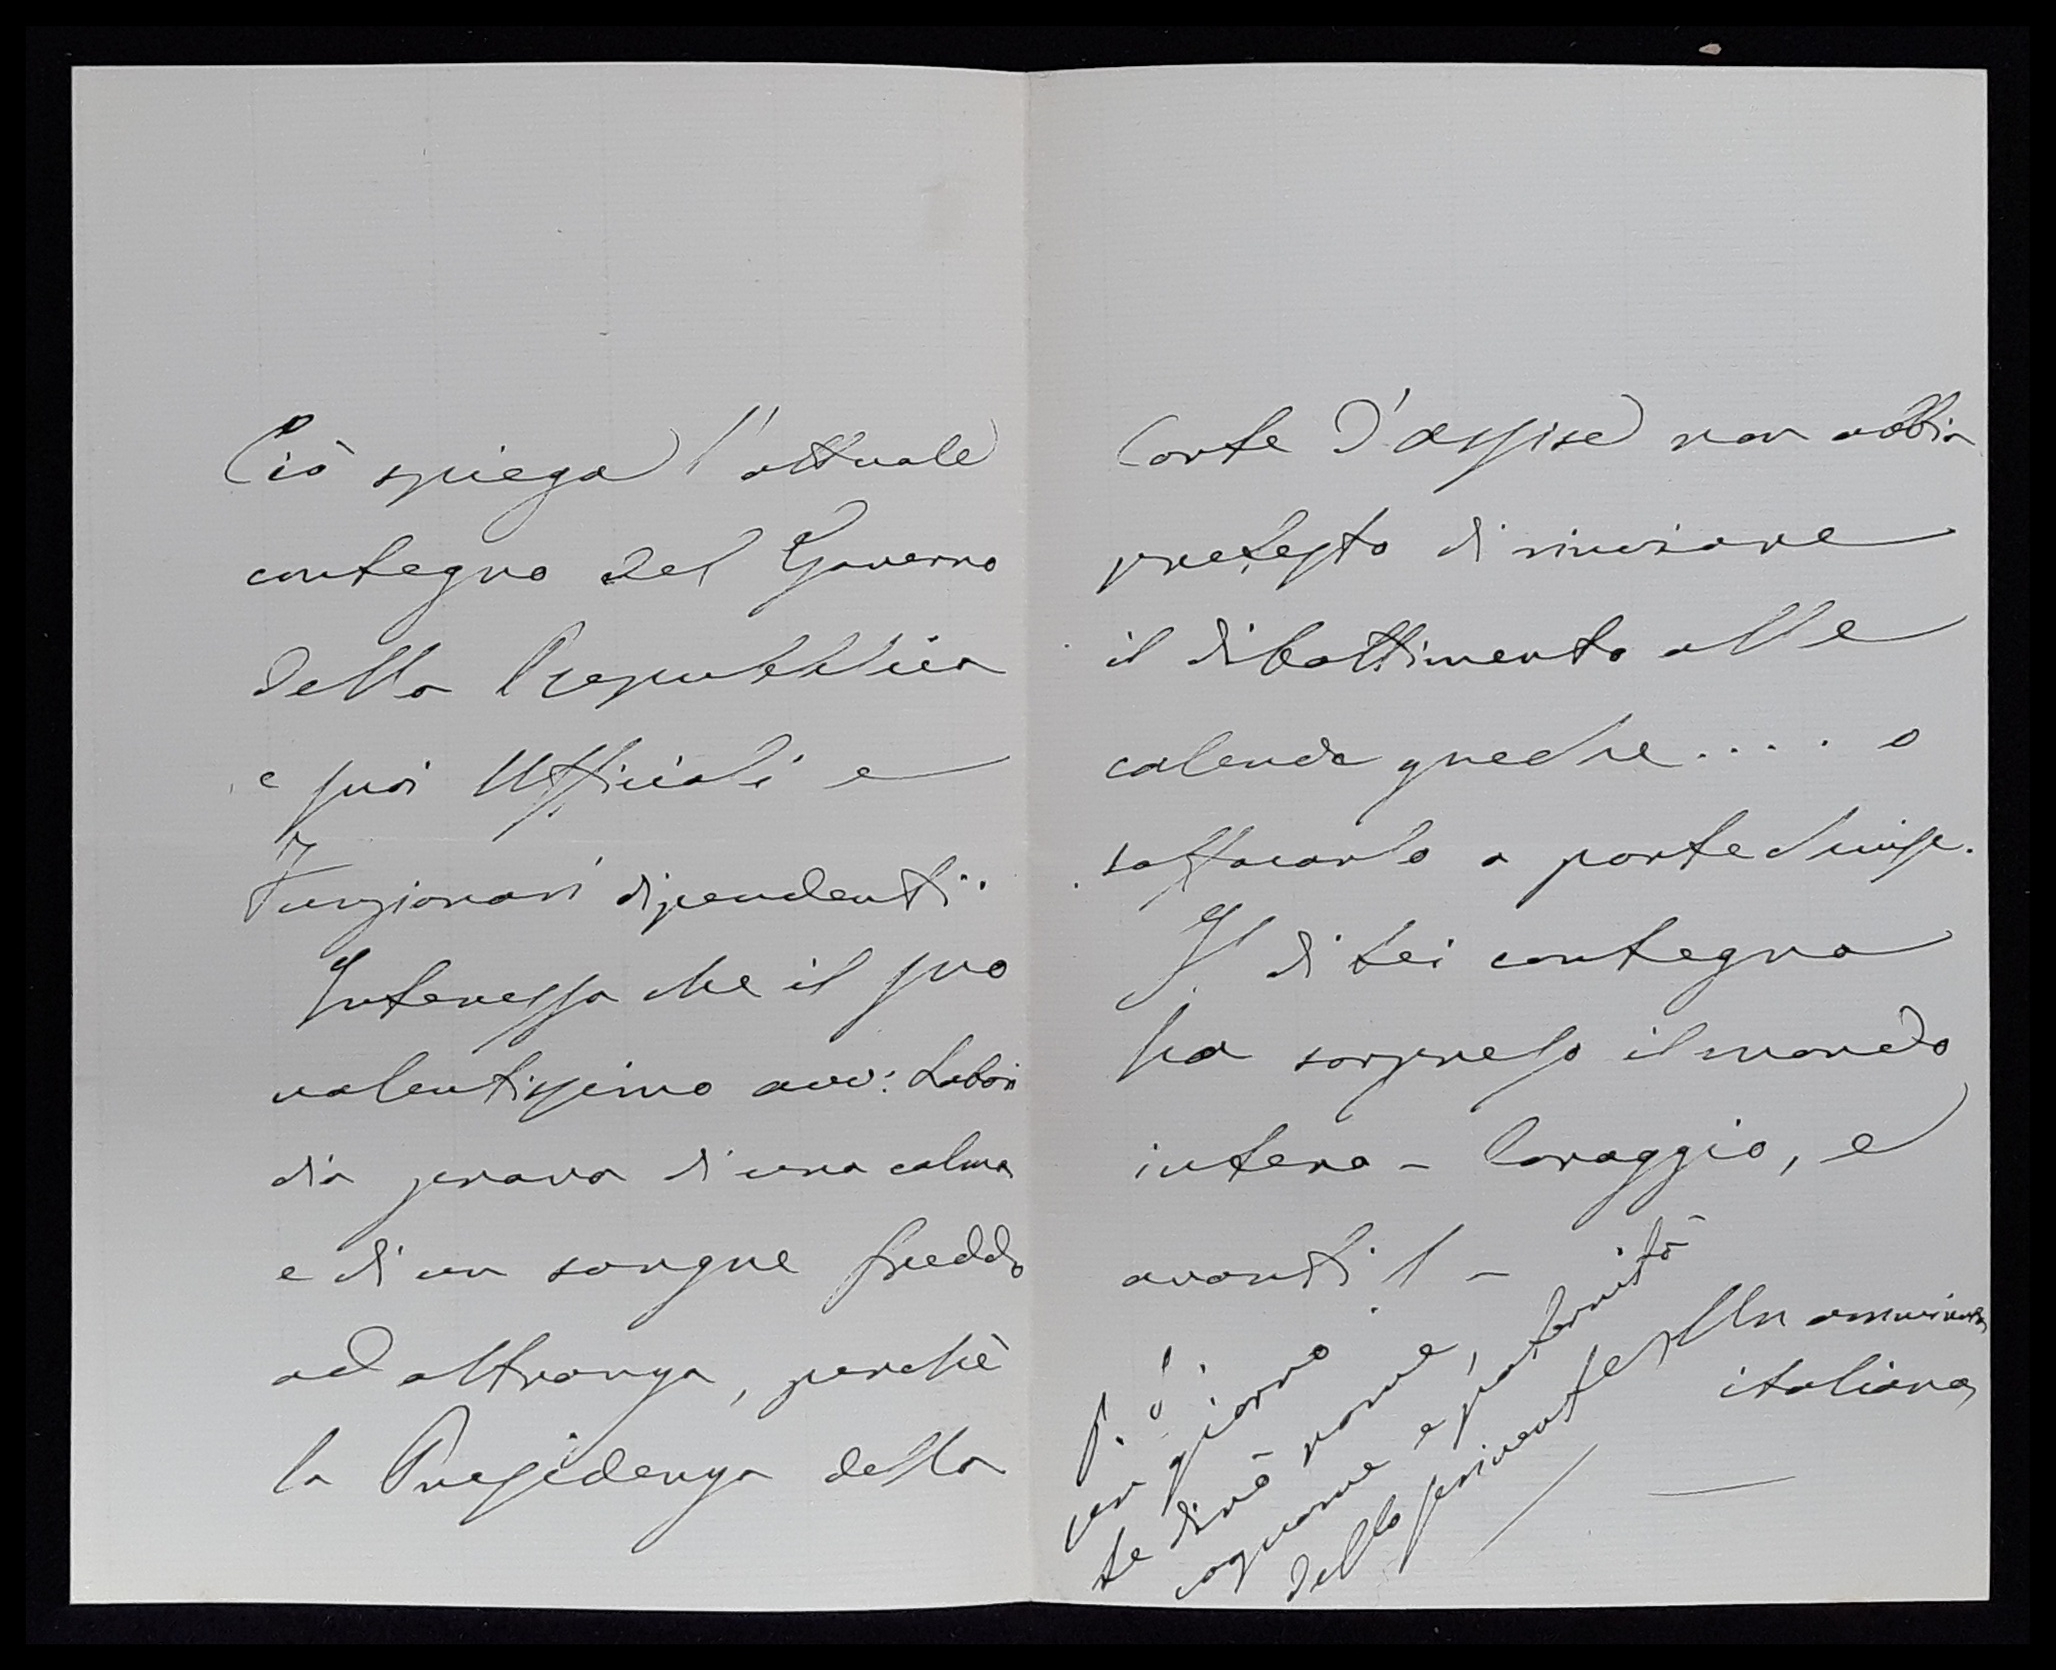 Ciò spiega l'attuale
contegno del Governo
della Repubblica
e suoi Ufficiali e
Funzionari dipendenti.
Interessa che il suo
valentissimo avv: Labori
dia prova di una calma
e di un sangue freddo
ad oltranza, perchè
la Presidenza della
Corte d'assise non abbia
pretesto di rinviare
il dibattimento alle
calende greche.... o
soffocarlo a porte chiuse.
Il di Lei contegno
ha sorpreso il mondo
intero - Coraggio, e
avanti! -
Un ammiratore
italiano
P.S.
un giorno
Le dirò nome,
cognome e paternità
dello scrivente